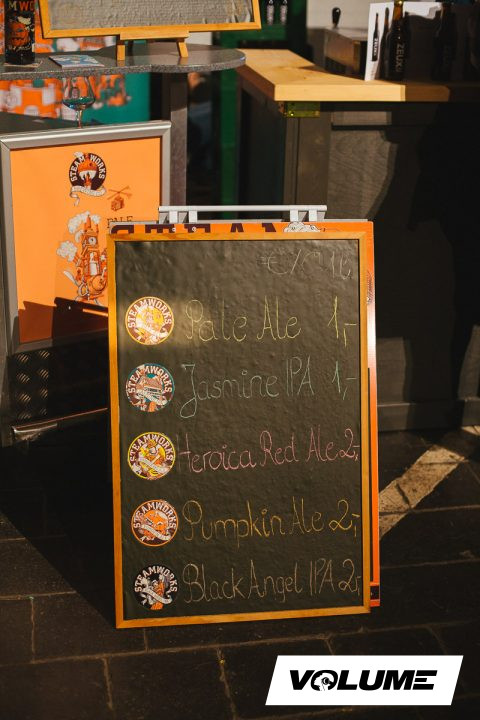 MW
ZEUX
STEAMWORKS
STEAM
€/0,1L
STEAMWORKS Pale Ale 1,-
STEAMWORKS Jasmine IPA 1,-
STEAMWORKS Heroica Red Ale 2,-
STEAMWORKS Pumpkin Ale 2,-
STEAMWORKS Black Angel IPA 2,-
VOLUME